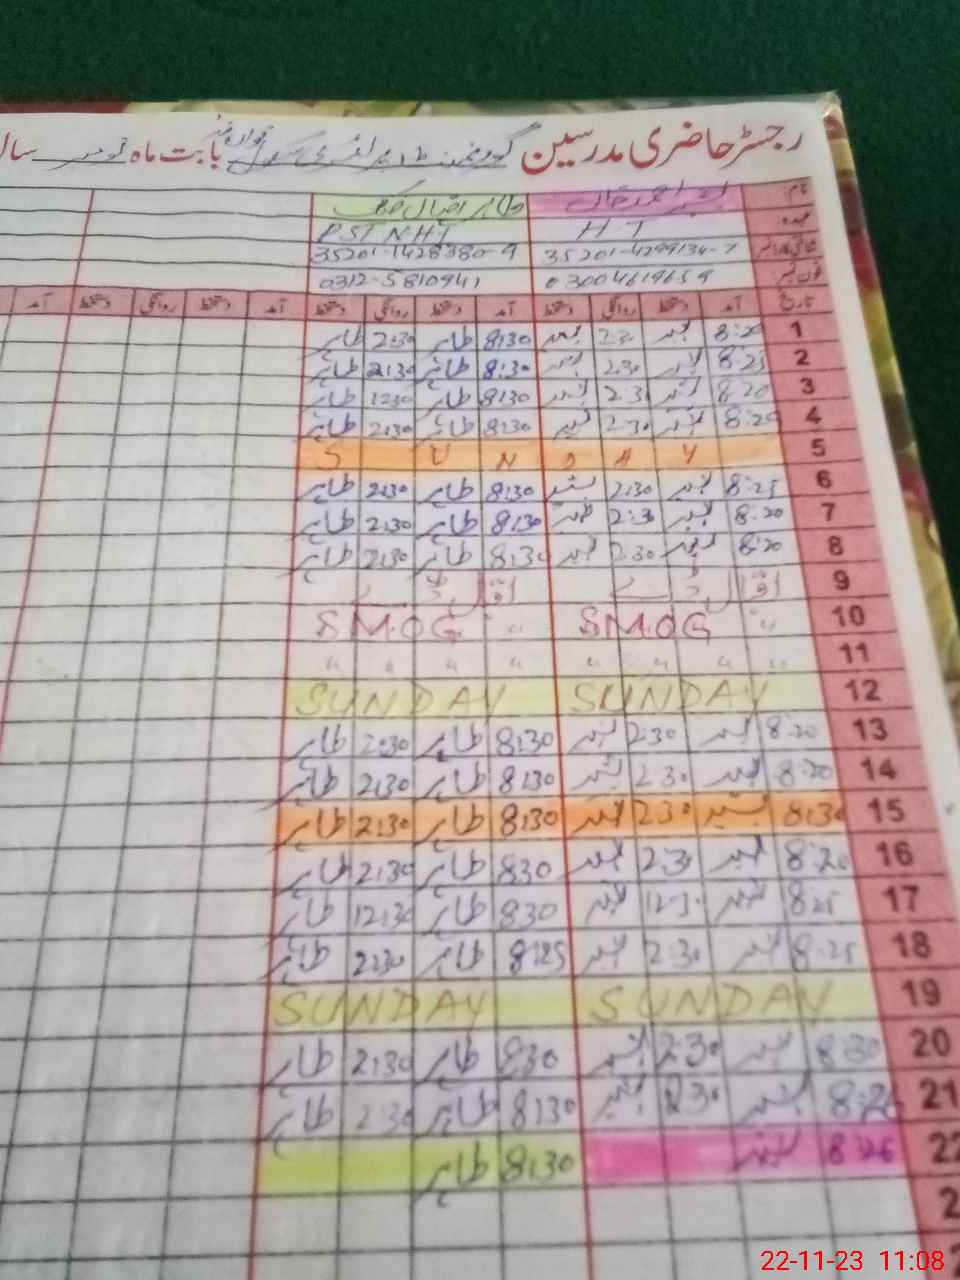 رجسٹر حاضری مدرسین گورنمنٹ پرائمری سکول بابت ماہ نومبر سال
نام طاہر اقبال
عہدہ H T PST NHT
شناختی کارڈ نمبر 35201-4299134-7 35201-1428380-9
فون نمبر 03004619659 0312-5810941
تاریخ آمد دستخط روانگی دستخط آمد دستخط روانگی دستخط آمد دستخط روانگی دستخط آمد
1 8:20 2:30 8:30 طاہر 2:30 طاہر
2 8:25 2:30 8:30 طاہر 2:30 طاہر
3 8:20 2:3 8:30 طاہر 1230 طاہر
4 8:20 2:30 8:30 طاہر 2:30 طاہر
5 S U N D A Y
6 8:25 2:30 8:30 طاہر 2:30 طاہر
7 8:20 2:3 8:30 طاہر 2:30 طاہر
8 8:20 2:30 8:30 طاہر 2:30 طاہر
9 اقبال ڈے اقبال ڈے
10 " SMOG " SMOG
11 " " " " " " " "
12 SUNDAY SUNDAY
13 8:20 2:30 8:30 طاہر 2:30 طاہر
14 8:20 2:30 8:30 طاہر 2:30 طاہر
15 8:30 بشیر 2:30 8:30 طاہر 2:30 طاہر
16 8:20 2:30 830 طاہر 2:30 طاہر
17 8:25 12:30 830 طاہر 12:30 طاہر
18 8:25 2:30 8:25 طاہر 2:30 طاہر
19 SUNDAY SUNDAY
20 8:30 2:30 830 طاہر 2:30 طاہر
21 8:26 2:30 8:30 طاہر 2:30 طاہر
22 8:26 8:30 طاہر
2
22-11-23 11:08